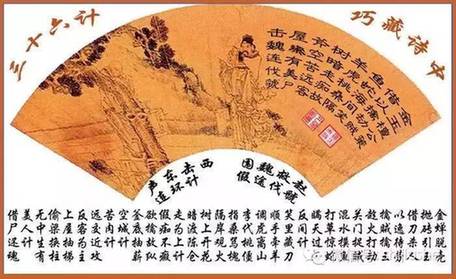 三十六计
巧藏诗中
金玉檀公策
借以擒劫贼
鱼蛇海间笑
羊虎桃桑隔
树暗走痴故
釜空苦远客
屋梁有美尸
击魏连伐虢
声东击西
连环计
围魏救赵
假途伐虢
金蝉脱壳
抛砖引玉
借刀杀人
以逸待劳
擒贼擒王
趁火打劫
关门捉贼
混水摸鱼
打草惊蛇
瞒天过海
反间计
笑里藏刀
顺手牵羊
调虎离山
李代桃僵
指桑骂槐
隔岸观火
树上开花
暗渡陈仓
走为上计
假痴不癫
欲擒故纵
釜底抽薪
空城计
苦肉计
远交近攻
反客为主
上屋抽梯
偷梁换柱
无中生有
美人计
借尸还魂